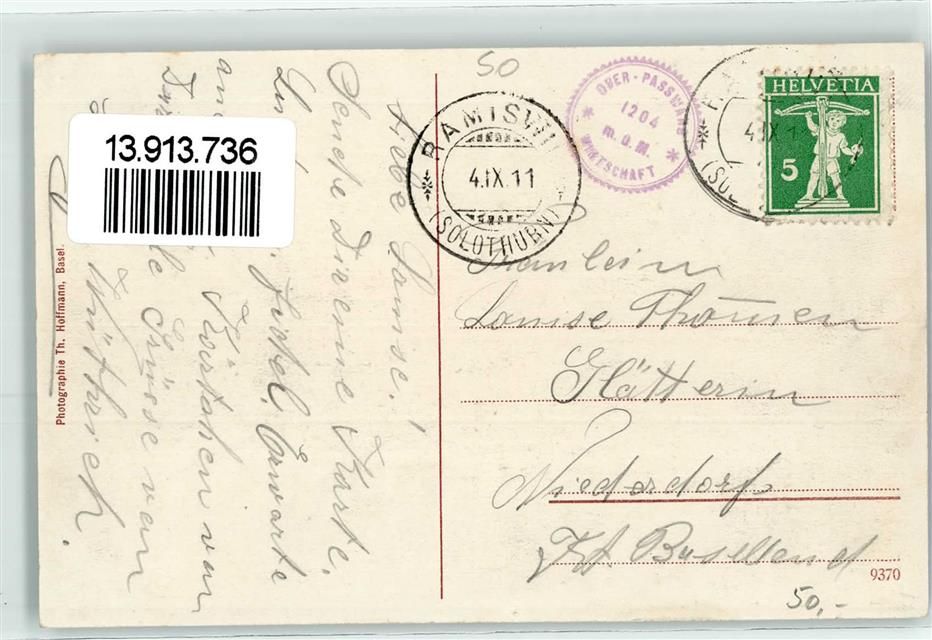 50
13.913.736
RAMISWIL
4.IX.11
(SOLOTHURN)
OBER-PASSWANG
1204
m.ü.M.
WIRTSCHAFT
HELVETIA
5
Photographie Th. Hoffmann, Basel.
Liebe Louise!
Sende Dir eine Karte.
Jockel. Erwarte
Kärtchen von
Grüsse von
Fräulein
Louise Thommen
Glätterin
Niederdorf
Kt. Baselland
9370
50,-